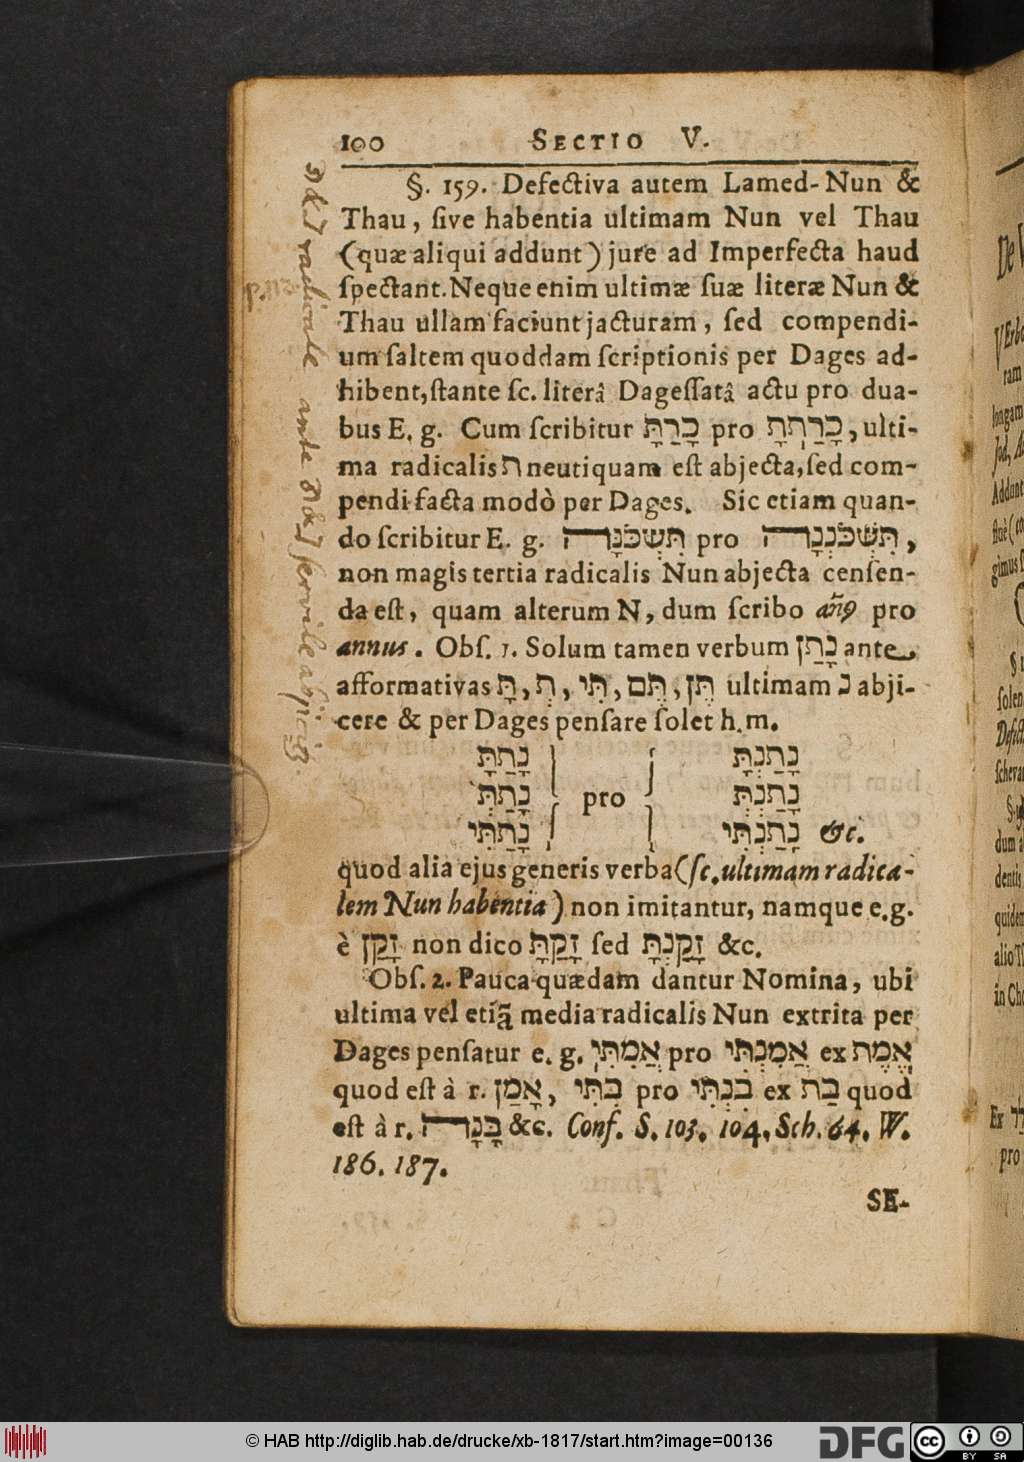 100 SECTIO V.
§. 159. Defectiva autem Lamed-Nun &
Thau, ſive habentia ultimam Nun vel Thau
(quæ aliqui addunt) jure ad Imperfecta haud
ſpectant. Neque enim ultimæ ſuæ literæ Nun &
Thau ullam faciunt jacturam, ſed compendi-
um ſaltem quoddam ſcriptionis per Dages ad-
hibent, ſtante ſc. literâ Dageſſatâ actu pro dua-
bus E. g. Cum ſcribitur כָּרַתָּ pro כָּרַתְתָּ, ulti-
ma radicalis ת neutiquam eſt abjecta, ſed com-
pendifacta modò per Dages. Sic etiam quan-
do ſcribitur E. g. תִּשְׁכֹּנָּה pro תִּשְׁכֹּנְנָה,
non magis tertia radicalis Nun abjecta cenſen-
da eſt, quam alterum N, dum ſcribo añ9 pro
annus. Obſ. 1. Solum tamen verbum נָתַן ante
afformativas תָּ, תְּ, תִּי, תֶּם, תֶּן ultimam נ abji-
cere & per Dages penſare ſolet h. m.
נָתַתָּ } pro { נָתַנְתָּ
נָתַתְּ נָתַנְתְּ
נָתַתִּי נָתַנְתִּי &c.
quod alia ejus generis verba (ſc. ultimam radica-
lem Nun habentia) non imitantur, namque e. g.
è זָקַן non dico זָקַתָּ ſed זָקַנְתָּ &c.
Obſ. 2. Pauca quædam dantur Nomina, ubi
ultima vel etiã media radicalis Nun extrita per
Dages penſatur e. g. אֲמִתִּי pro אֲמִנְתִּי ex אֱמֶת
quod eſt à r. אָמַן, בִּתִּי pro בִּנְתִּי ex בַּת quod
eſt à r. בָּנָה &c. Conf. S. 103. 104. Sch. 64. W.
186. 187.
SE-
נ & ת radicale ante נ & ת servile abjicit.
© HAB http://diglib.hab.de/drucke/xb-1817/start.htm?image=00136
DFG
cc
BY SA